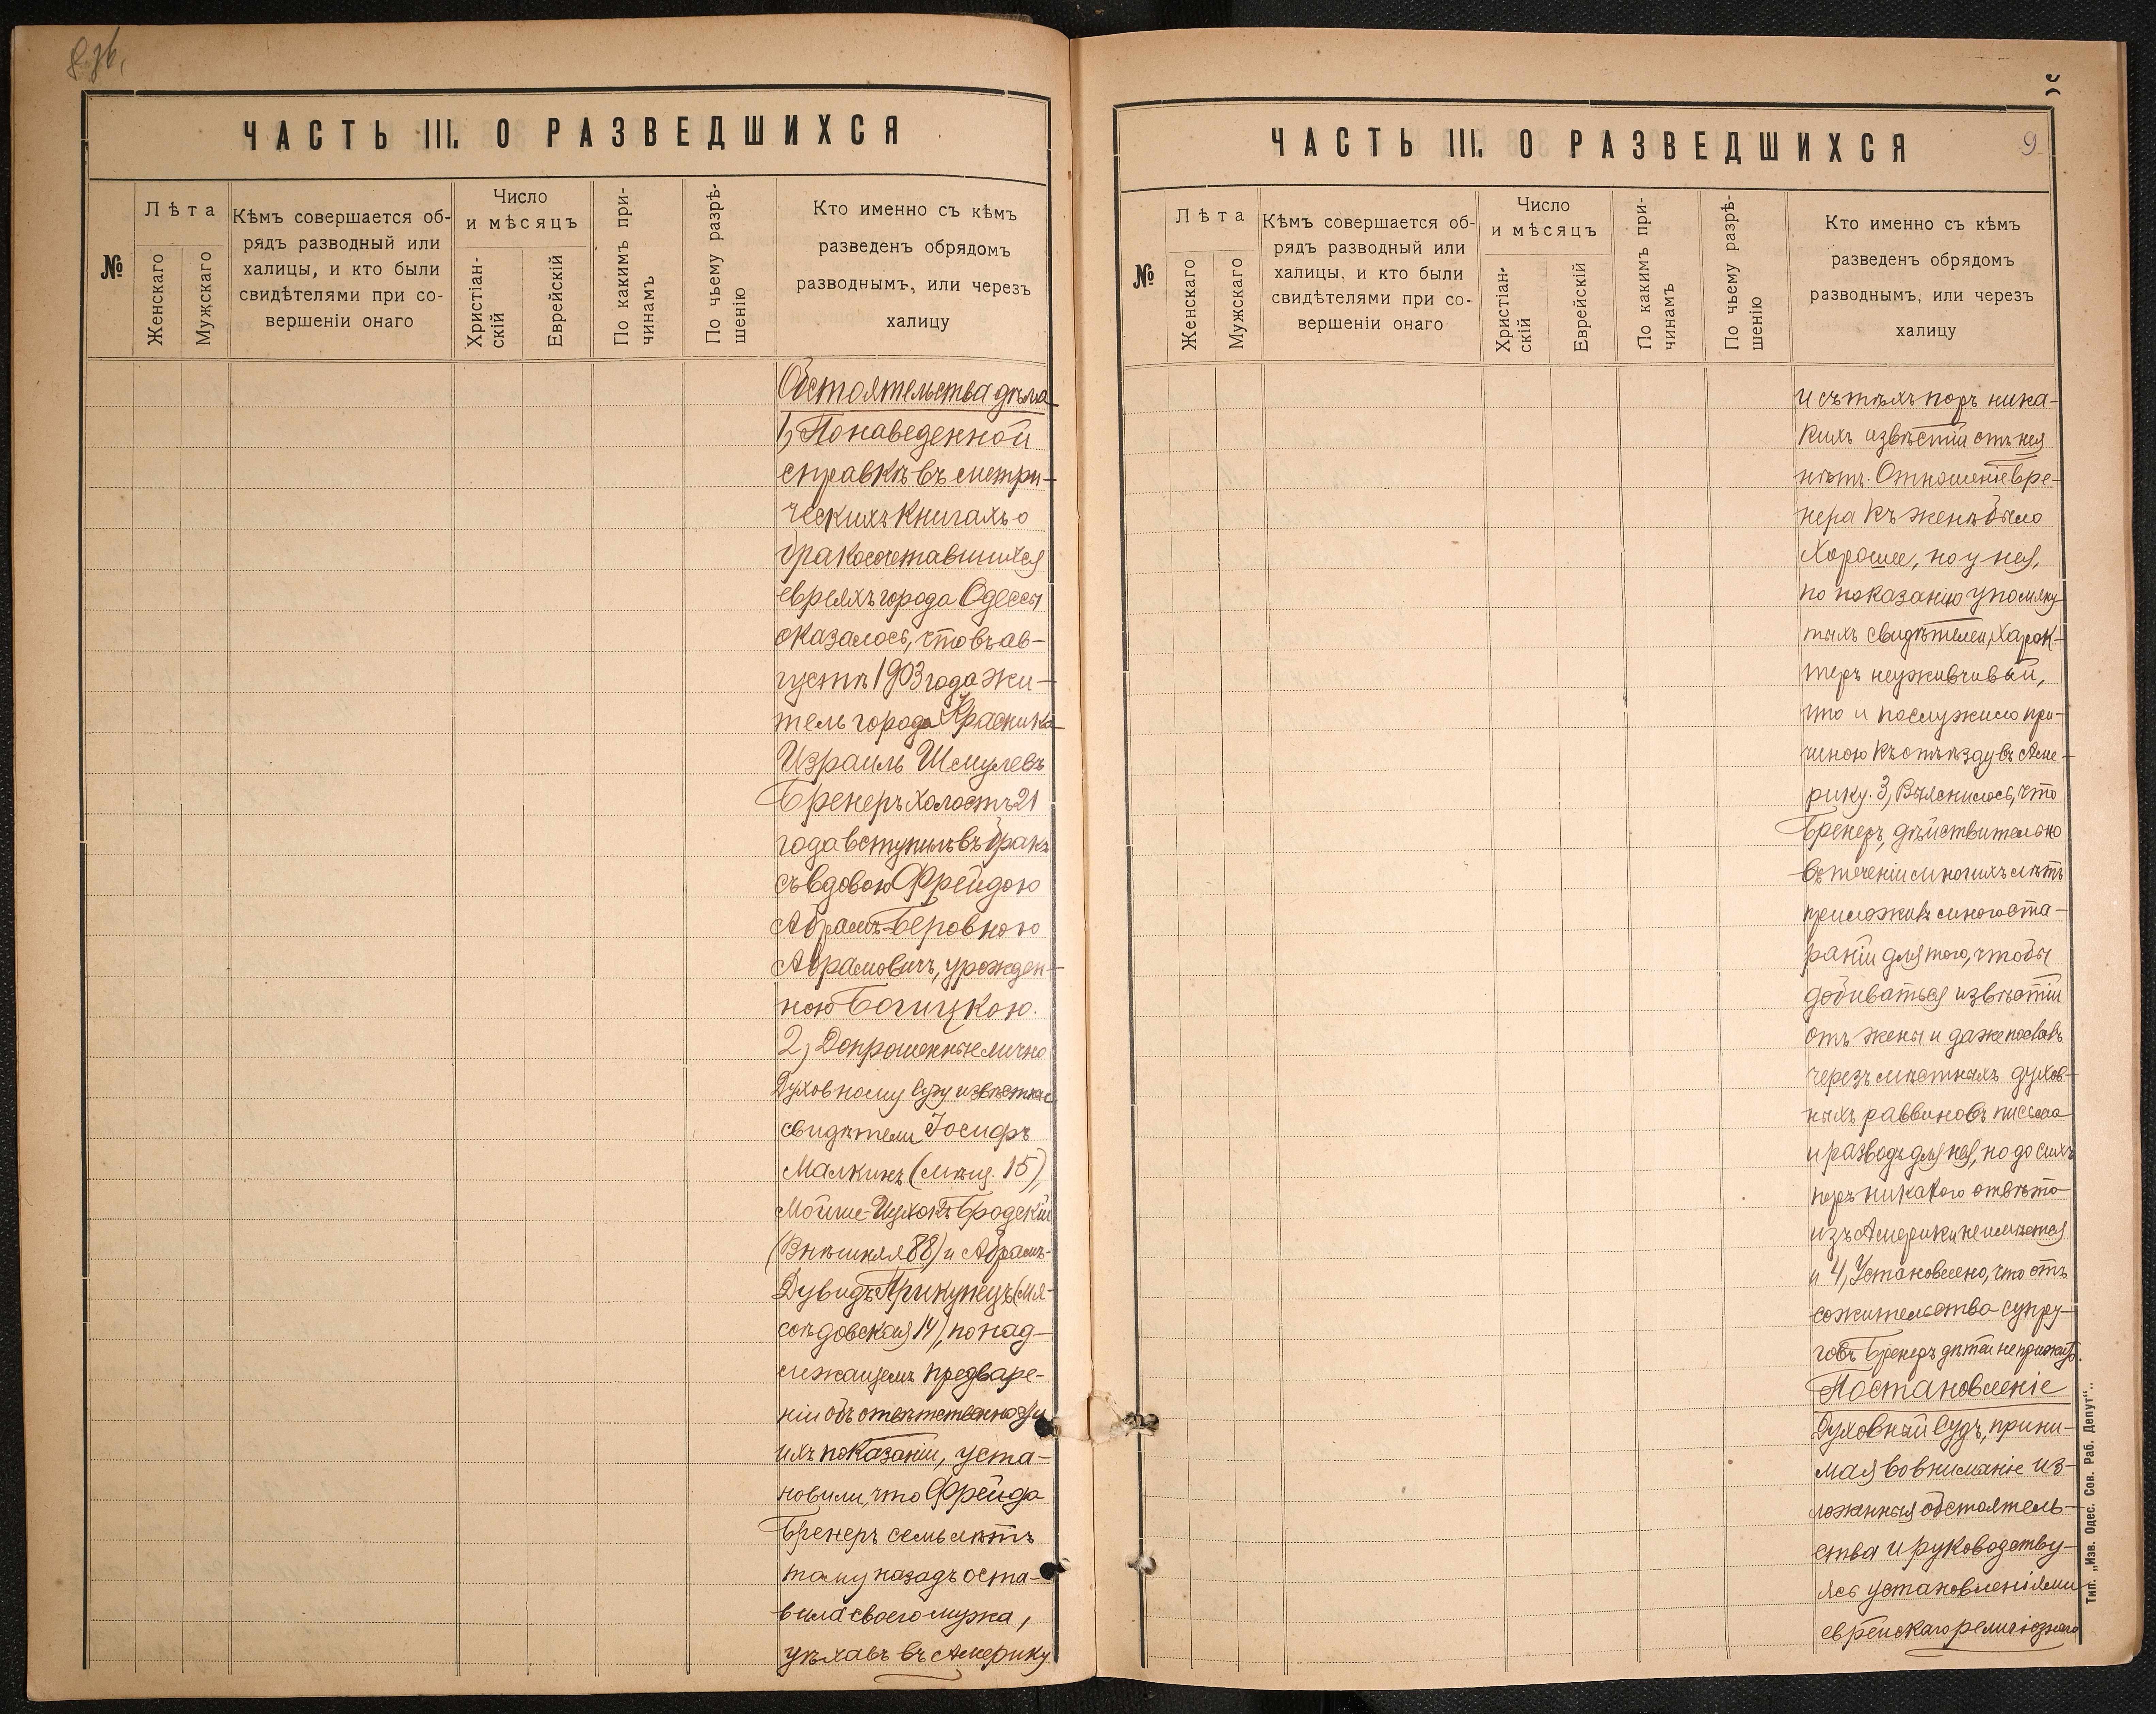 8 зв.
ЧАСТЬ III. О РАЗВЕДШИХСЯ
№
Лѣта
Женскаго
Мужскаго
Кѣмъ совершается об-
рядъ разводный или
халицы, и кто были
свидѣтелями при со-
вершеніи онаго
Число
и мѣсяцъ
Христіан-
скій
Еврейскій
По какимъ при-
чинамъ
По чьему разрѣ-
шенію
Кто именно съ кѣмъ
разведенъ обрядомъ
разводнымъ, или черезъ
халицу
Обстоятельства дѣла
1) По наведенной
справкѣ въ метри-
ческихъ книгахъ о
бракосочетавшихся
евреяхъ города Одессы
оказалось, что въ ав-
густѣ 1903 года жи-
тель города Красника
Израиль Шмулевъ
Бренеръ холостъ 21
года вступилъ въ бракъ
съ вдовою Фрейдою
Абрамъ-Беровною
Абрамовичъ, урожден-
ною Богицкою.
2) Допрошенные лично
Духовному Суду извѣстные
свидѣтели Іосифъ
Малкинъ (мѣщ. 15),
Мойше-Ицхокъ Бродскій
(Внѣшняя 88) и Абрамъ-
Дувидъ Прикупецъ (Мя-
соѣдовская 14), по над-
лежащемъ предваре-
ніи объ отвѣтственности
ихъ показаній, уста-
новили, что Фрейда
Бренеръ семь лѣтъ
тому назадъ оста-
вила своего мужа,
уѣхавъ въ Америку
ЧАСТЬ III. О РАЗВЕДШИХСЯ
9
№
Лѣта
Женскаго
Мужскаго
Кѣмъ совершается об-
рядъ разводный или
халицы, и кто были
свидѣтелями при со-
вершеніи онаго
Число
и мѣсяцъ
Христіан-
скій
Еврейскій
По какимъ при-
чинамъ
По чьему разрѣ-
шенію
Кто именно съ кѣмъ
разведенъ обрядомъ
разводнымъ, или черезъ
халицу
и съ тѣхъ поръ ника-
кихъ извѣстій отъ нея
нѣтъ. Отношеніе Бре-
нера къ женѣ было
хорошее, но у нея,
по показанію упомяну-
тыхъ свидѣтелей, харак-
теръ неуживчивый,
что и послужило при-
чиною къ отъѣзду въ Аме-
рику. 3) Выяснилось, что
Бренеръ, дѣйствительно
въ теченіи многихъ лѣтъ
приложивъ много ста-
раній для того, чтобы
добиваться извѣстій
отъ жены и даже пославъ
черезъ мѣстныхъ духов-
ныхъ раввиновъ письма
и разводъ для нея, но до сихъ
поръ никакого отвѣта
изъ Америки не имѣется
и 4) Установлено, что отъ
сожительства супру-
говъ Бренеръ дѣтей не прижито.
Постановленіе
Духовный Судъ, прини-
мая во вниманіе из-
ложенныя обстоятель-
ства и руководству-
ясь установленіями
еврейскаго религіознаго
Тип. „Изв. Одес. Сов. Раб. Депут“.